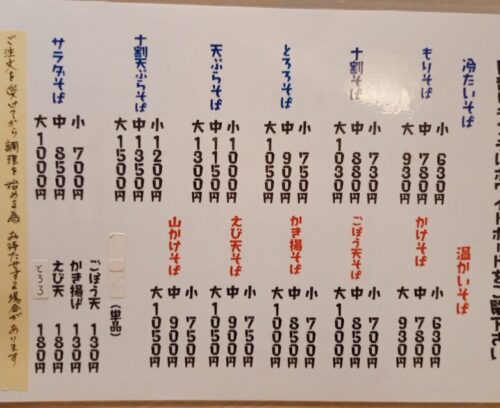 ご覧下さい
冷たいそば
もりそば
小 630円
中 780円
大 930円
十割そば
小 730円
中 880円
大 1030円
とろろそば
小 750円
中 900円
大 1050円
天ぷらそば
小 1000円
中 1150円
大 1300円
十割天ぷらそば
小 1200円
中 1350円
大 1500円
サラダそば
小 700円
中 850円
大 1000円
温かいそば
かけそば
小 630円
中 780円
大 930円
ごぼう天そば
小 750円
中 900円
大 1050円
かき揚そば
小 750円
中 900円
大 1050円
えび天そば
小 750円
中 900円
大 1050円
山かけそば
小 750円
中 900円
大 1050円
(単品)
ごぼう天 130円
かき揚げ 130円
えび天 180円
とろろ 180円
ご注文を受けてから調理を始めます為 お待たせする場合があります